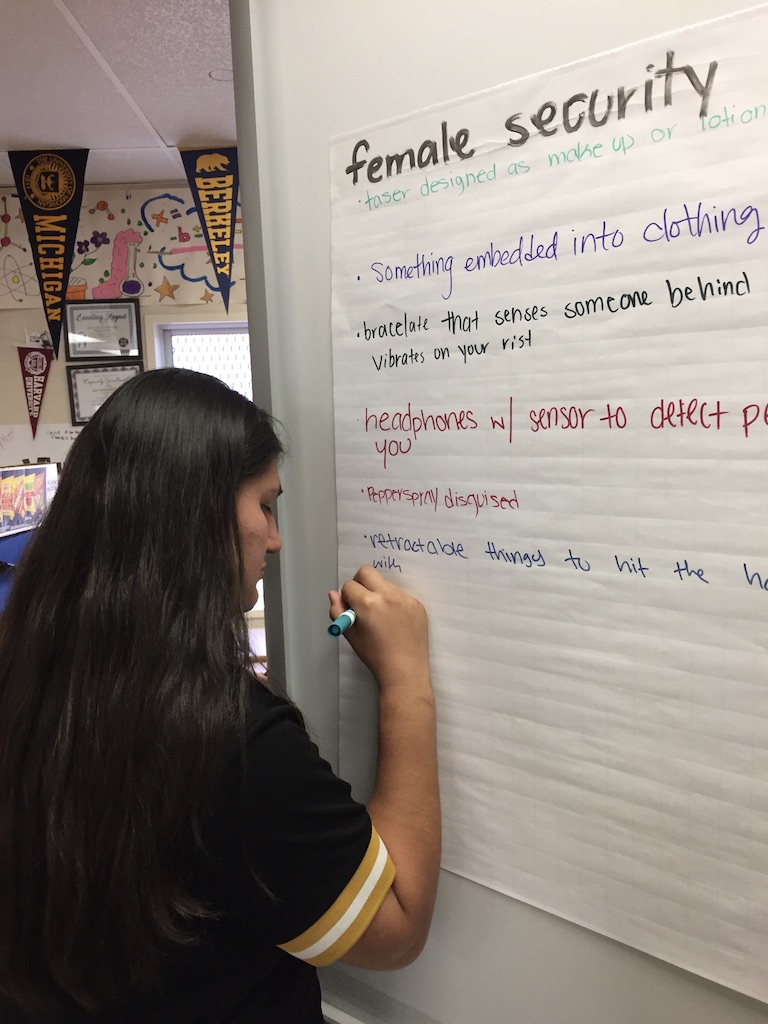 female security
· taser designed as make up or lotion
· something embedded into clothing
· bracelate that senses someone behind
vibrates on your rist
headphones w/ sensor to detect pe
you
· Pepperspray disguised
· retractable thingy to hit the ha
with
MICHIGAN
BERKELEY
HARVARD
UNIVERSITY